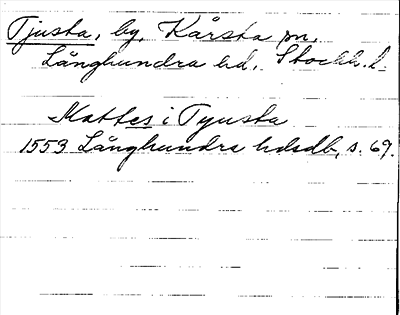 Tjusta, by, Kårsta sn,
Långhundra hd, Stockh. l.
Mattes i Tyusta
1553 Långhundra hdsdb, s. 69.